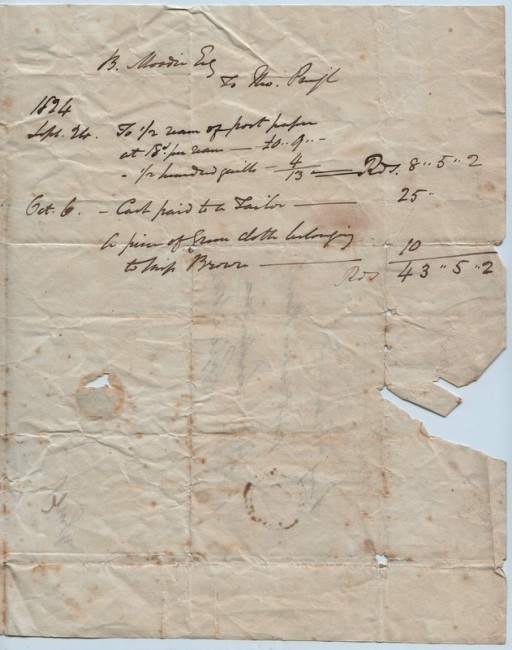 B. Moodie Esq
To Tho. Pringle
1824
Sept. 24. To 1/2 ream of post paper
at 18/ per ream — £0 " 9 " -
- 1/2 hundred quills — 4
13 — Rds. 8 " 5 " 2
Oct. 6. - Cash paid to a Tailor — 25 -
A piece of Green cloth belonging
to Miss Brown — 10
Rds 43 " 5 " 2